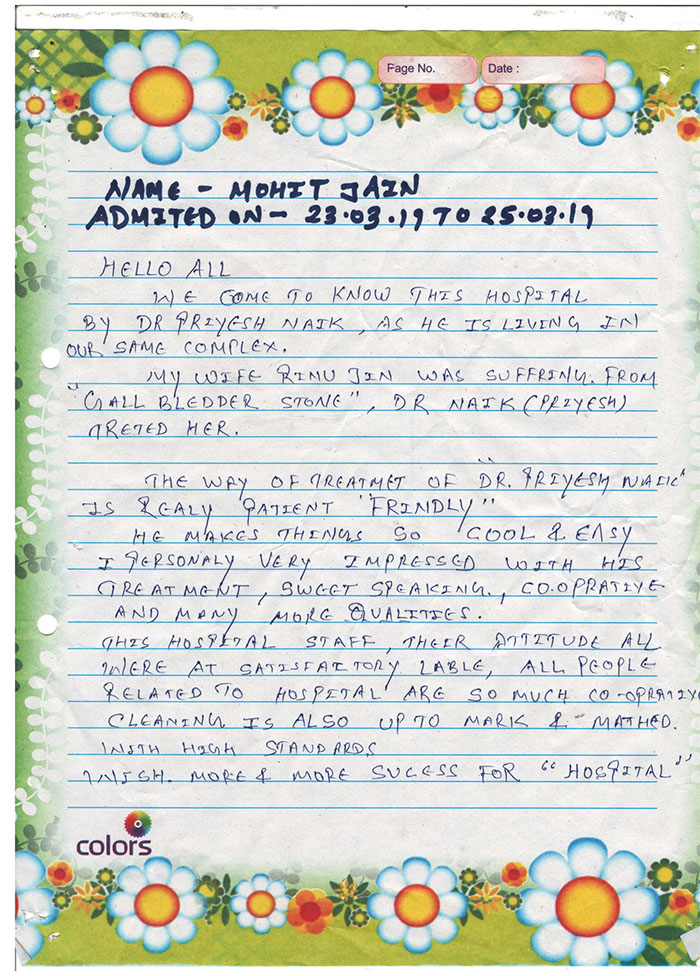 Page No.
Date :
NAME - MOHIT JAIN
ADMITED ON - 23.03.19 TO 25.03.19
HELLO ALL
WE COME TO KNOW THIS HOSPITAL
BY DR PRIYESH NAIK, AS HE IS LIVING IN
OUR SAME COMPLEX.
MY WIFE RINU JIN WAS SUFFRING. FROM
"GALL BLEDDER STONE", DR NAIK (PRIYESH)
TRETED HER.
THE WAY OF TREATMET OF "DR. PRIYESH NAIK"
IS REALY PATIENT "FRINDLY"
HE MAKES THINGS SO COOL & EASY
I PERSONALY VERY IMPRESSED WITH HIS
TREATMENT, SWEET SPEAKING., CO.OPRATIVE
AND MANY MORE QUALITIES.
THIS HOSPITAL STAFF, THEIR ATTITUDE ALL
WERE AT SATISFAITORY LABLE, ALL PEOPLE
RELATED TO HOSPITAL ARE SO MUCH CO-OPRATIVE
CLEANING IS ALSO UP TO MARK & MATHED.
WITH HIGH STANDARDS
WISH. MORE & MORE SUCESS FOR "HOSPITAL"
colors